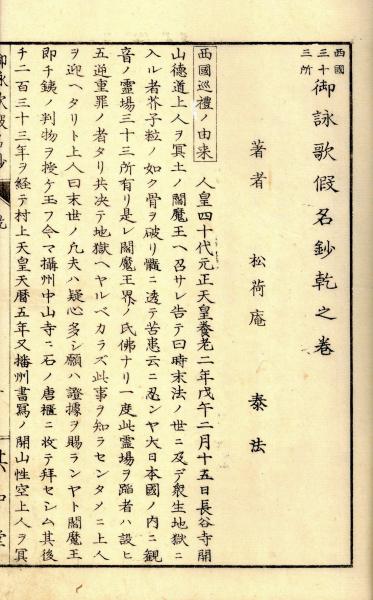 西國三十三所御詠歌假名鈔乾之巻
著者　松荷庵　泰法
西國巡禮ノ由来　人皇四十代元正天皇養老二年戊午二月十五日長谷寺開
山德道上人ヲ冥土ノ閻魔王ヘ召サレ告テ曰時末法ノ世ニ及デ衆生地獄ニ
入ル者芥子粒ノ如ク骨ヲ破リ髓ニ透テ苦患云ニ忍ンヤ大日本國ノ内ニ觀
音ノ靈場三十三所有リ是レ閻魔王界ノ氏佛ナリ一度此靈場ヲ踏者ハ設ヒ
五逆重罪ノ者タリ共决テ地獄ヘヤルベカラズ此事ヲ知ラセンタメニ上人
ヲ迎ヘタリト上人曰末世ノ凡夫ハ疑心多シ願ハ證據ヲ賜ランヤト閻魔王
即チ鐵ノ判物ヲ授ケ玉フ今マ攝州中山寺ニ石ノ唐櫃ニ收テ拜セシム其後
チ二百三十三年ヲ経テ村上天皇天曆五年又播州書寫ノ開山性空上人ヲ冥